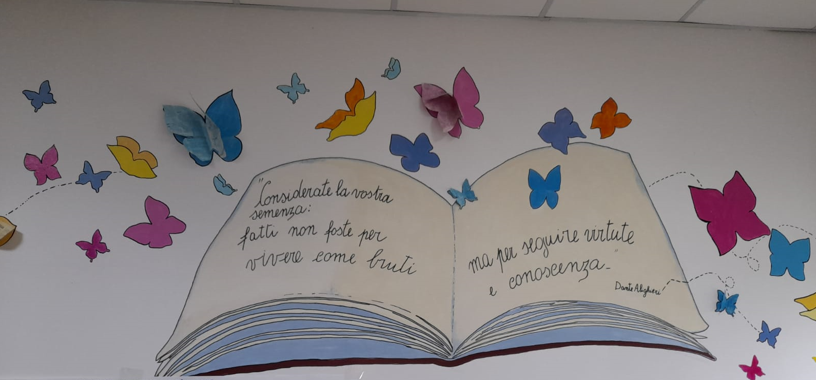 "Considerate la vostra
semenza:
fatti non foste per
vivere come bruti
ma per seguire virtute
e conoscenza"
Dante Alighieri